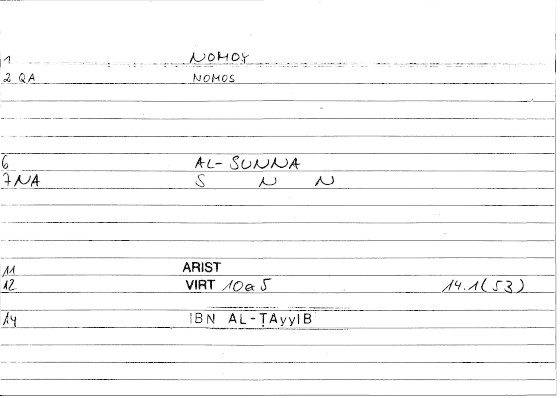 1 NOMOY
2 QA NOMOS
6 AL-SUNNA
7 NA S N N
11 ARIST
12 VIRT 10a5 14.1(53)
14 IBN AL-ṬAyyIB